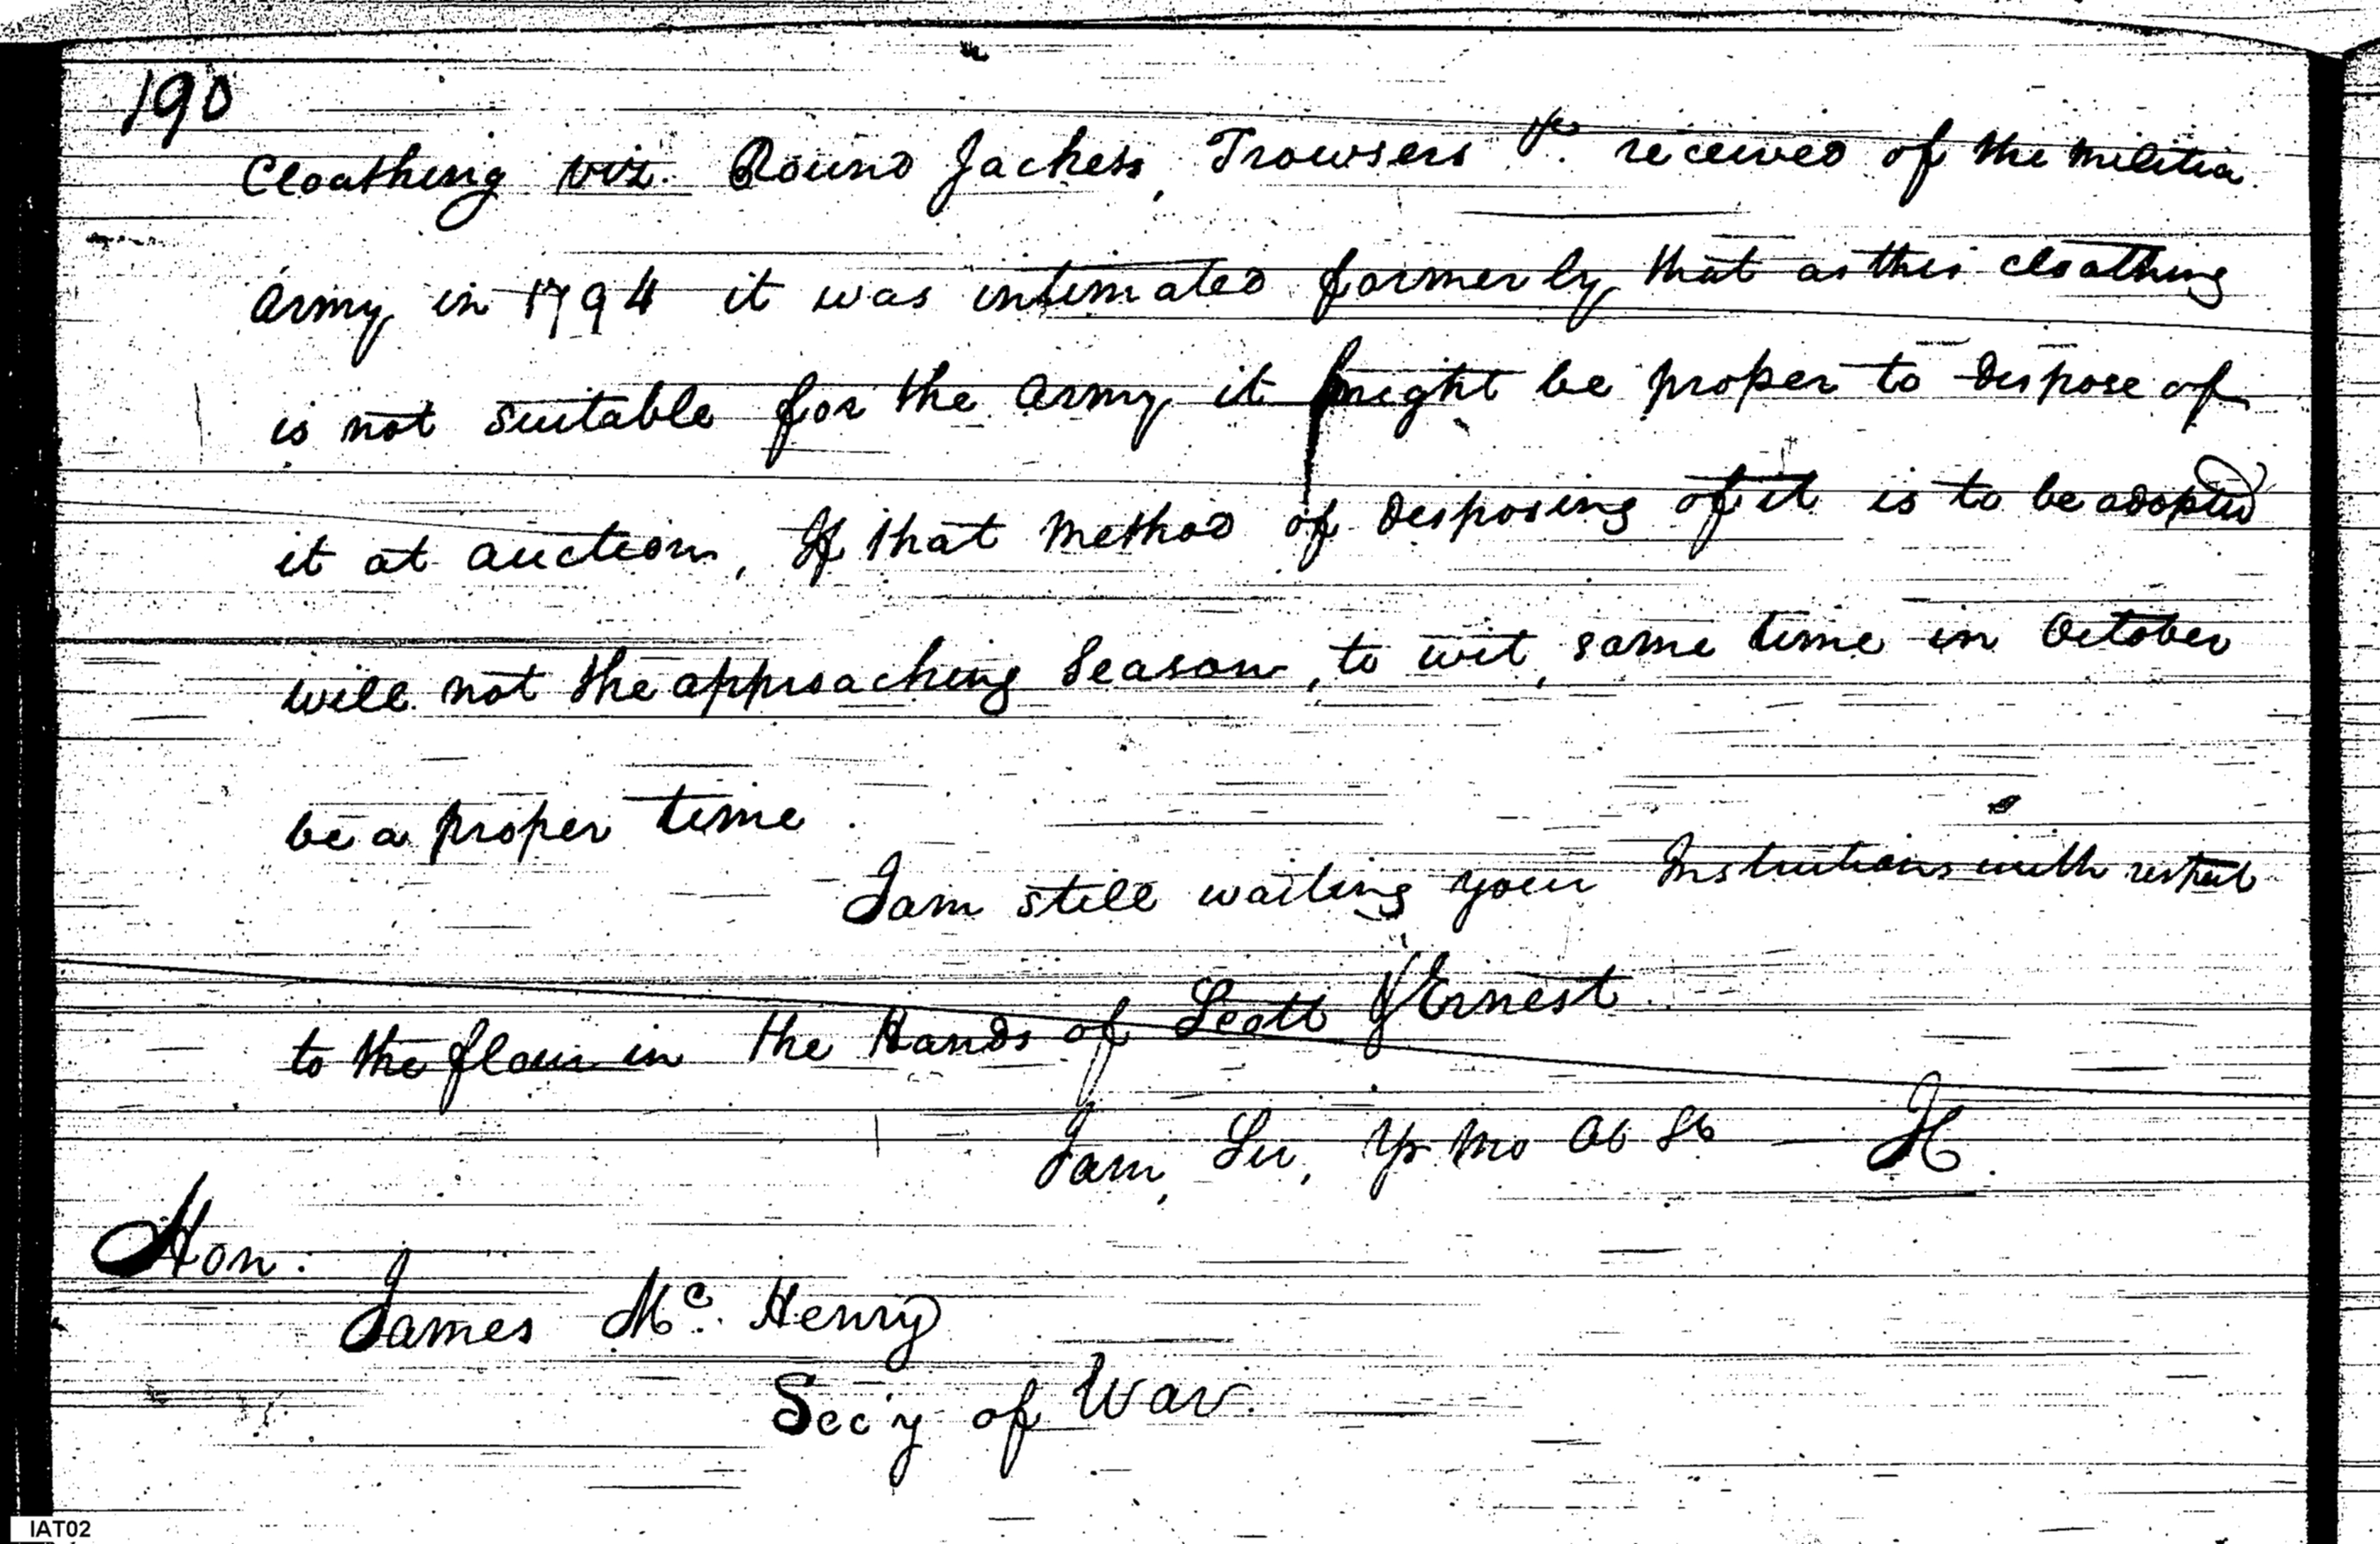 190
Cloathing viz. Round Jackets, Trowsers &c. received of the militia
Army in 1794 it was intimated formerly that as this cloathing
is not suitable for the Army it might be proper to dispose of
it at auction, If that Method of disposing of it is to be adopted
will not the approaching Season, to wit, some time in October
be a proper time.
I am still waiting your Instrutions with respect
to the flour in the Hands of Scott & Ernest.
I am, Sir, Yr. Mo Ob St — IC.
Hon:
James Mc. Henry
Sec'y of War.
IAT02